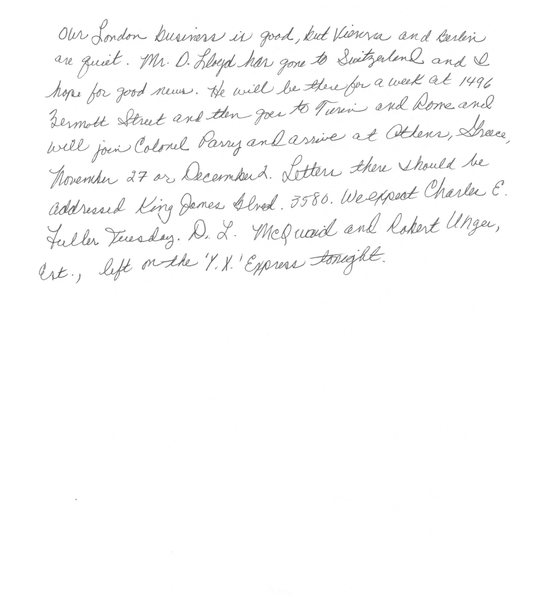 Our London business is good, but Vienna and Berlin
are quiet. Mr. D. Lloyd has gone to Switzerland and I
hope for good news. He will be there for a week at 1496
Zermott Street and then goes to Turin and Rome and
will join Colonel Parry and arrive at Athens, Greece,
November 27 or December 2. Letters there should be
addressed King James Blvd. 3580. We expect Charles E.
Fuller Tuesday. D. L. McQuaid and Robert Unger,
Esq., left on the 'Y.X.' Express tonight.